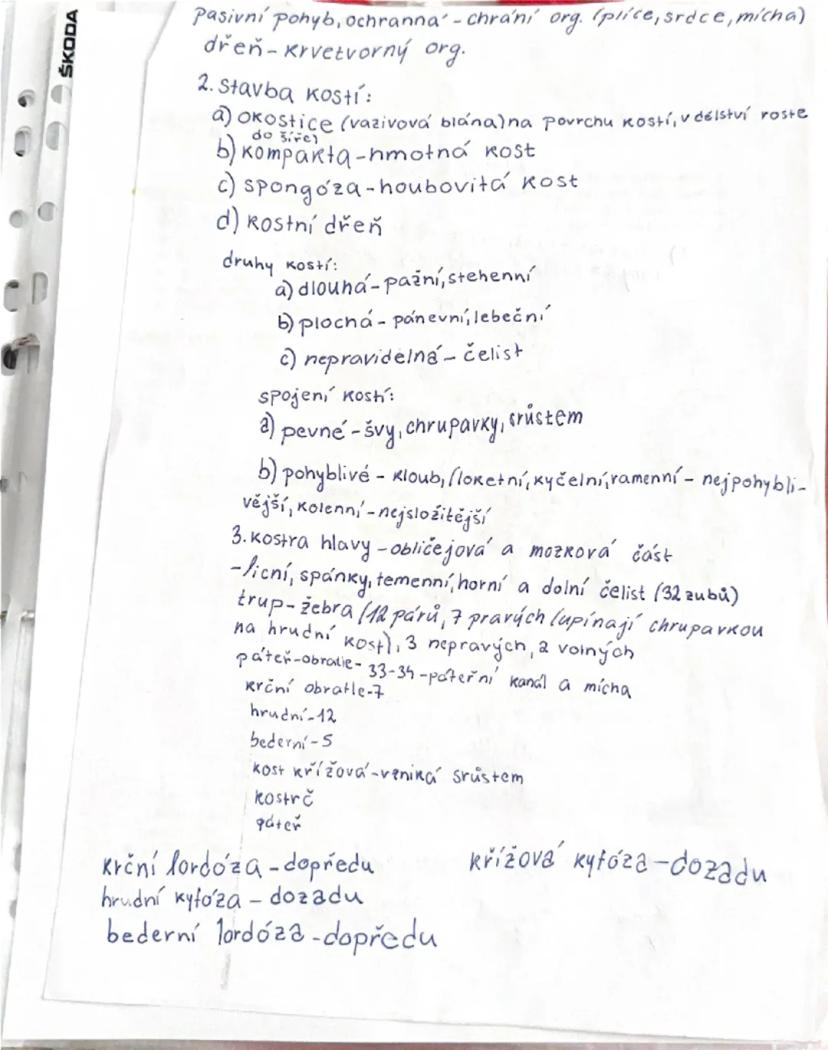 ŠKODA
pasivní pohyb, ochranná - chrání org. (plíce, srdce, mícha)
dřeň - krvetvorný org.
2. stavba kostí:
a) okostice (vazivová blána) na povrchu kostí, v dělství roste
do šíře)
b) kompakta - hmotná kost
c) spongóza - houbovitá kost
d) kostní dřeň
druhy kostí:
a) dlouhá - pažní, stehenní
b) plochá - pánevní, lebeční
c) nepravidelná - čelist
spojení kostí:
a) pevné - švy, chrupavky, srůstem
b) pohyblivé - kloub, (loketní, kyčelní, ramenní - nejpohybli-
vější, kolenní - nejsložitější
3. kostra hlavy - obličejová a mozková část
- lícní, spánky, temenní, horní a dolní čelist (32 zubů)
trup - žebra (12 párů, 7 pravých (upínají chrupavkou
na hrudní kost), 3 nepravých, 2 volných
páteř - obratle - 33-34 - páteřní kanál a mícha
krční obratle - 7
hrudní - 12
bederní - 5
kost křížová - vzniká srůstem
kostrč
páteř
krční lordóza - dopředu křížová kyfóza - dozadu
hrudní kyfóza - dozadu
bederní lordóza - dopředu